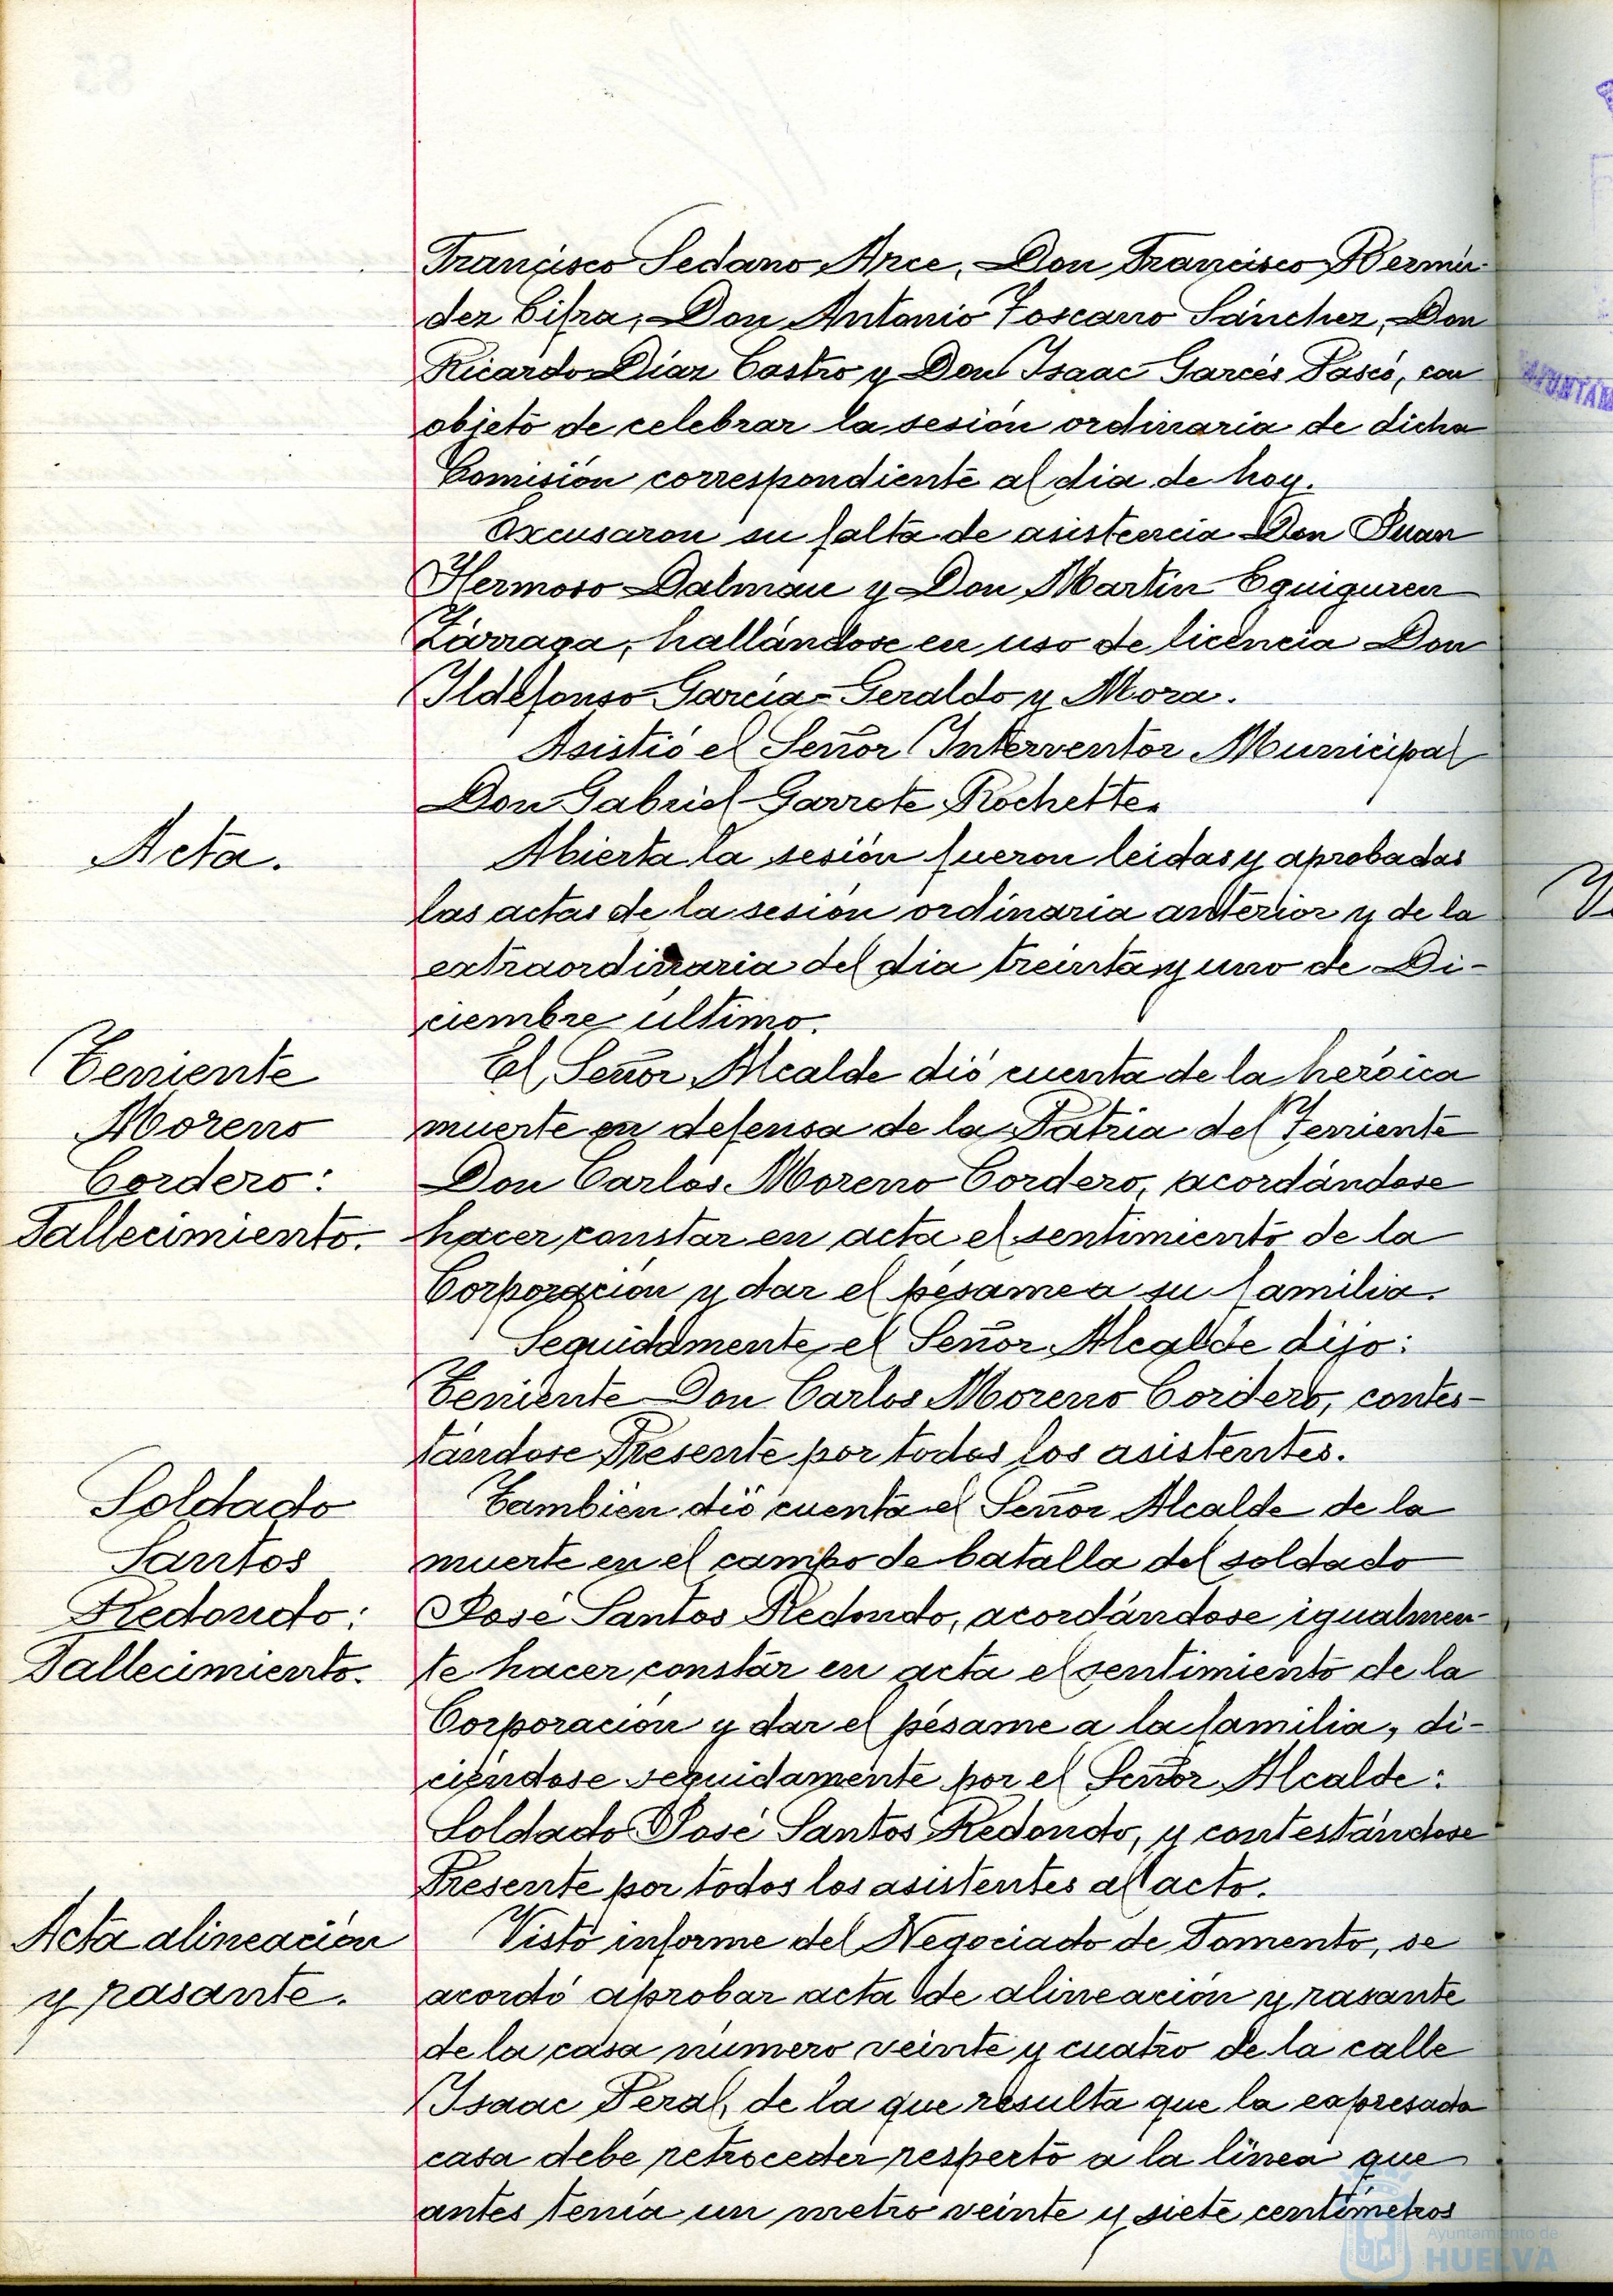 Francisco Sedano Arce, Don Francisco Bermú-
dez Cifra, Don Antonio Toscano Sánchez, Don
Ricardo Díaz Castro y Don Isaac Garcés Pascó, con
objeto de celebrar la sesión ordinaria de dicha
Comisión correspondiente al dia de hoy.
Excusaron su falta de asistencia Don Juan
Hermoso Dalmau y Don Martín Eguiguren
Zárraga, hallándose en uso de licencia Don
Ildefonso García-Geraldo y Mora.
Asistió el Señor Interventor Municipal
Don Gabriel Garrote Rochette.
Acta.
Abierta la sesión fueron leidas y aprobadas
las actas de la sesión ordinaria anterior y de la
extraordinaria del dia treinta y uno de Di-
ciembre último.
Teniente
Moreno
Cordero:
Fallecimiento.
El Señor Alcalde dió cuenta de la heróica
muerte en defensa de la Patria del Teniente
Don Carlos Moreno Cordero, acordándose
hacer constar en acta el sentimiento de la
Corporación y dar el pésame a su familia.
Seguidamente, el Señor Alcalde dijo:
Teniente Don Carlos Moreno Cordero, contes-
tándose Presente por todos los asistentes.
Soldado
Santos
Redondo:
Fallecimiento.
También dió cuenta el Señor Alcalde de la
muerte en el campo de batalla del soldado
José Santos Redondo, acordándose igualmen-
te hacer constar en acta el sentimiento de la
Corporación y dar el pésame a la familia, di-
ciéndose seguidamente por el Señor Alcalde:
Soldado José Santos Redondo, y contestándose
Presente por todos los asistentes al acto.
Acta alineación
y rasante.
Visto informe del Negociado de Fomento, se
acordó aprobar acta de alineación y rasante
de la casa número veinte y cuatro de la calle
Isaac Peral, de la que resulta que la expresada
casa debe retroceder respecto a la línea que
antes tenía un metro veinte y siete centímetros
Ayuntamiento de
HUELVA